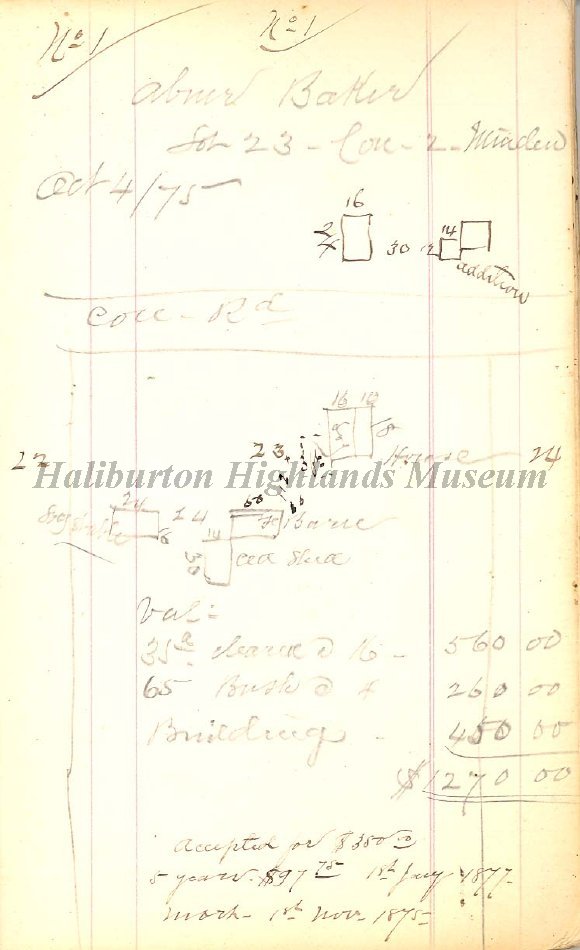 No 1 No 1
Abner Baker
Lot 23 - Con - 2 - Minden
Oct 4/75
16
24 30 12 14
addition
Con - Rd
16 10
18
22 23 House 24
Haliburton Highlands Museum
24 60
14 Barn
14
30 Shed
Val =
35 a cleared @ 16 - 560 00
65 Bush @ 4 260 00
Building - 450 00
$1270 00
Accepted for $350 00
5 years $97 75 1st Jany 1877
Mort - 1st Nov. 1875